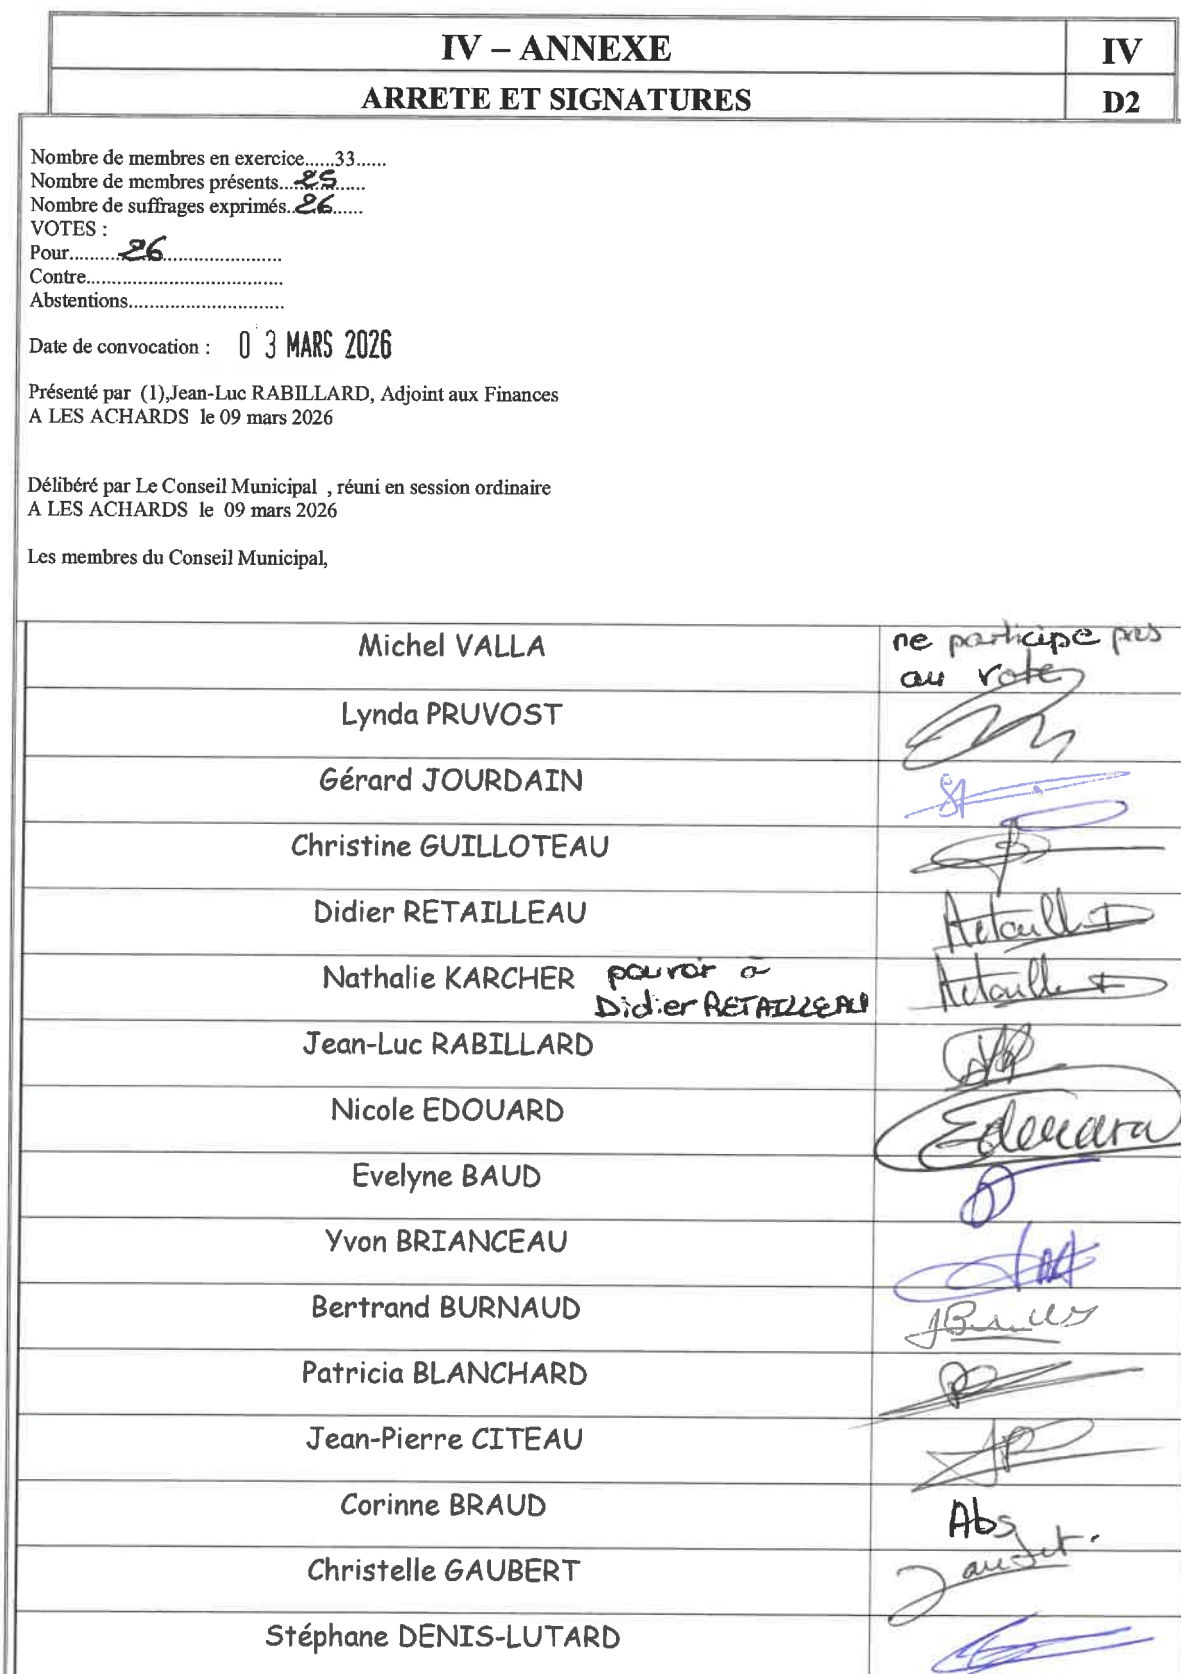 IV – ANNEXE
IV
ARRETE ET SIGNATURES
D2
Nombre de membres en exercice......33......
Nombre de membres présents...25......
Nombre de suffrages exprimés..26......
VOTES :
Pour..........26........................
Contre.....................................
Abstentions.............................
Date de convocation : 0 3 MARS 2026
Présenté par (1),Jean-Luc RABILLARD, Adjoint aux Finances
A LES ACHARDS le 09 mars 2026
Délibéré par Le Conseil Municipal , réuni en session ordinaire
A LES ACHARDS le 09 mars 2026
Les membres du Conseil Municipal,
Michel VALLA
ne participe pas
au vote
Lynda PRUVOST
Gérard JOURDAIN
Christine GUILLOTEAU
Didier RETAILLEAU
Nathalie KARCHER pouvoir à
Didier RETAILLEAU
Jean-Luc RABILLARD
Nicole EDOUARD
Edouard
Evelyne BAUD
Yvon BRIANCEAU
Bertrand BURNAUD
Patricia BLANCHARD
Jean-Pierre CITEAU
Corinne BRAUD
Abs
Christelle GAUBERT
Stéphane DENIS-LUTARD